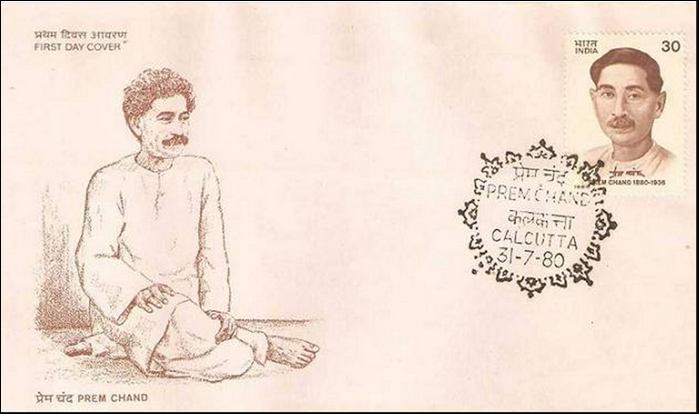 प्रथम दिवस आवरण
FIRST DAY COVER
भारत
INDIA
30
PREM CHAND 1880-1936
प्रेम चंद
PREM CHAND
कलकत्ता
CALCUTTA
31-7-80
प्रेम चंद PREM CHAND